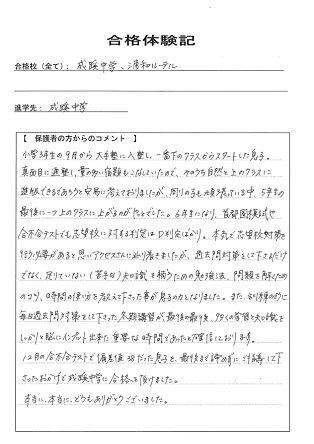 合格体験記
合格校（全て）： 成蹊中学、浦和ルーテル
進学先： 成蹊中学
【 保護者の方からのコメント 】
小学3年生の9月から大手塾に入塾し、一番下のクラスからスタートした息子。
真面目に通塾し、量の多い宿題もこなしていたので、そのうち自然と上のクラスに
進級できるであろうと安易に考えておりましたが、周りの子も頑張っている中、5年生の
最後に一つ上のクラスに上がるのがやっとでした。6年生になり、首都圏模試や
合不合テストでも志望校に対する判定はD判定ばかり。本気で志望校対策を
行う必要があると思いアクセスさんに辿り着きましたが、過去問対策をして下さるだけ
でなく、足りていない（苦手な）知識を補うための勉強法、問題を解くための
コツ、時間の使い方を教えて下さった事が息子の力となりました。また、
毎日過去問対策をして下さった冬期講習が、最後の最後、多くの皆営と知識を
しっかりと脳にインプット出来た重要な時間であったと確信しております。
12月の合不合テストで偏差値38だった息子を、最後まで諦めずにご指導して下
さったおかげで成蹊中学に合格を頂けました。
本当に、本当に、どうもありがとうございました。